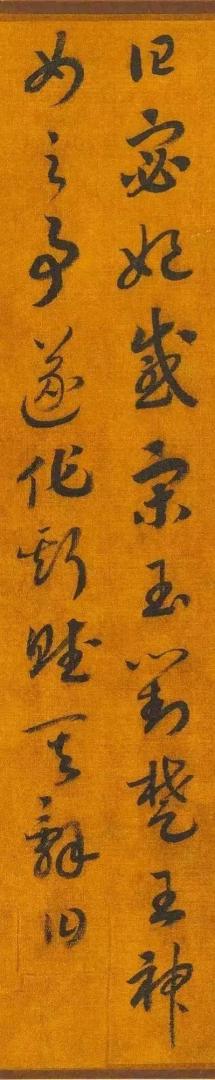 曰宓妃感宋玉對楚王神
女之事遂作斯賦其辭曰